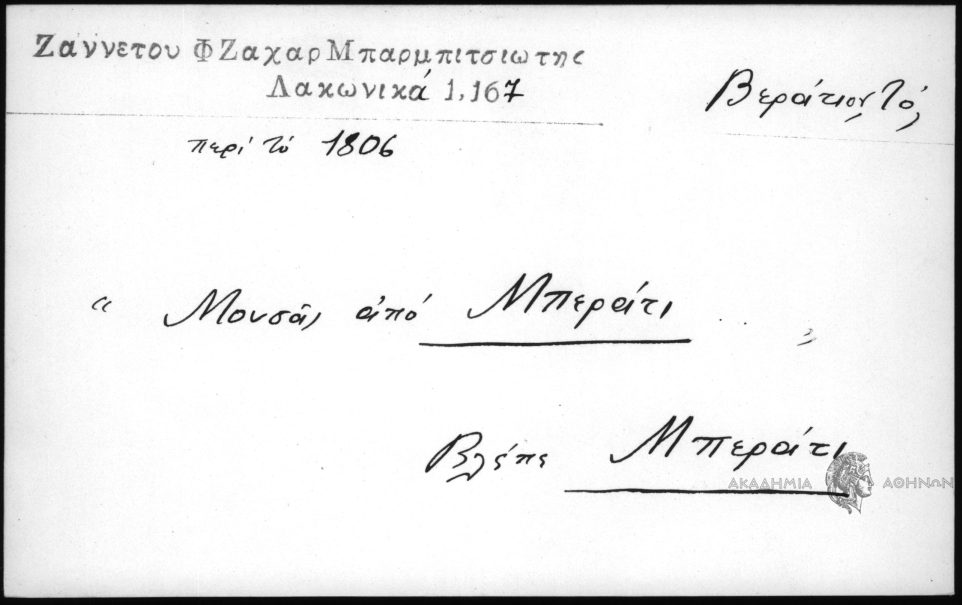 Ζαννετου Φ Ζαχαρ Μπαρμπιτσιωτης
Λακωνικά 1,167
Βεράτιον, Τό,
περί τό 1806
“ Μουσᾶς ἀπό Μπεράτι . . „
Βλέπε Μπεράτι
ΑΚΑΔΗΜΙΑ ΑΘΗΝΩΝ